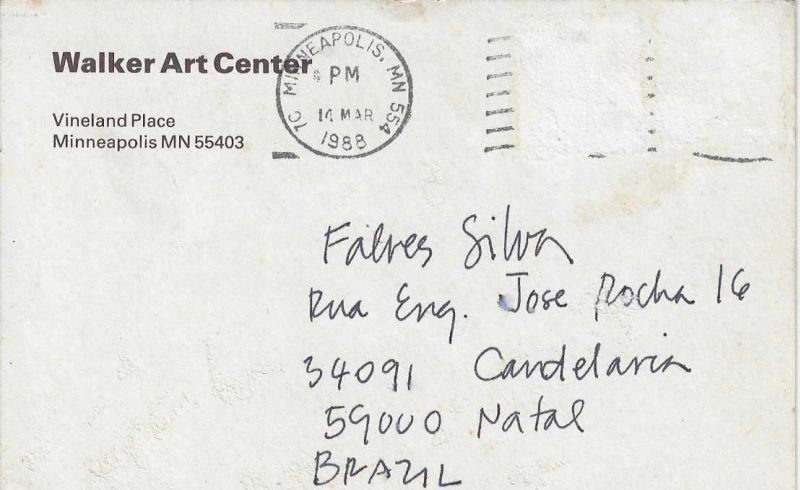 Walker Art Center
Vineland Place
Minneapolis MN 55403
MINNEAPOLIS, MN 554
PM
14 MAR
1988
Falves Silva
Rua Eng. Jose Rocha 16
34091 Candelaria
59000 Natal
BRAZIL